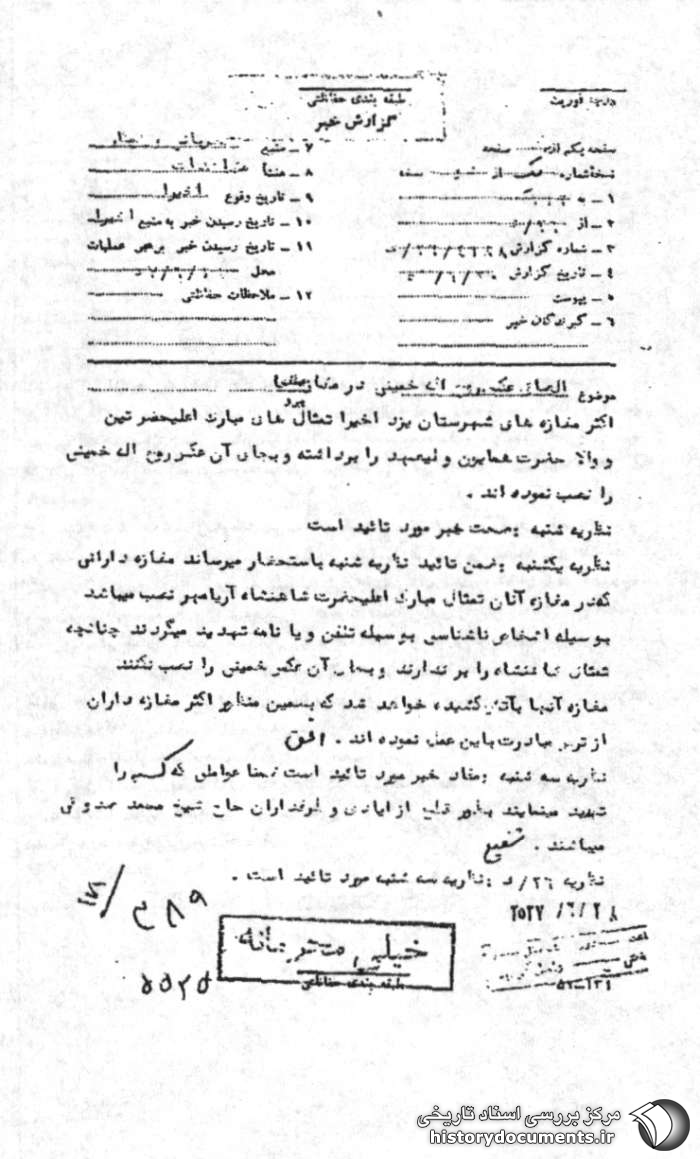 طبقه بندی حفاظتی
گزارش خبر
درجه فوریت
صفحه یکم از صفحه
نسخه شماره یک از نسخه
۱ـ به
۲ـ از
۳ـ شماره گزارش
۴ـ تاریخ گزارش
۵ـ پیوست
۶ـ گیرندگان خبر
۷ـ منبع
۸ـ منشأ
۹ـ تاریخ وقوع اخیرا
۱۰ـ تاریخ رسیدن خبر به منبع اخیرا
۱۱ـ تاریخ رسیدن خبر برهبر عملیات
محل
۱۲ـ ملاحظات حفاظتی
موضوع الصاق عکس روح اله خمینی در مغازه‌های
یزد
اکثر مغازه های شهرستان یزد اخیرا تمثال های مبارک اعلیحضرتین
و والا حضرت همایون ولیعهد را برداشته و بجای آن عکس روح اله خمینی
را نصب نموده اند .
نظریه شنبه : صحت خبر مورد تائید است
نظریه یکشنبه : ضمن تائید نظریه شنبه باستحضار میرساند مغازه دارانی
که در مغازه آنان تمثال مبارک اعلیحضرت شاهنشاه آریامهر نصب میباشد
بوسیله اشخاص ناشناس بوسیله تلفن و یا نامه تهدید میگردند چنانچه
تمثال شاهنشاه را بر ندارند و بجای آن عکس خمینی را نصب نکنند
مغازه آنها بآتش کشیده خواهد شد که بهمین منظور اکثر مغازه داران
از ترس مبادرت باین عمل نموده اند . افق
نظریه سه شنبه : مفاد خبر مورد تائید است ضمنا عواملی که کسبه را
تهدید مینمایند بطور قطع از ایادی و طرفداران حاج شیخ محمد صدوقی
میباشند . شفیع
نظریه ۲۶/د : نظریه سه شنبه مورد تائید است .
۲۵۳۷/۶/۲۸
خیلی محرمانه
طبقه بندی حفاظتی
مرکز بررسی اسناد تاریخی
historydocuments.ir